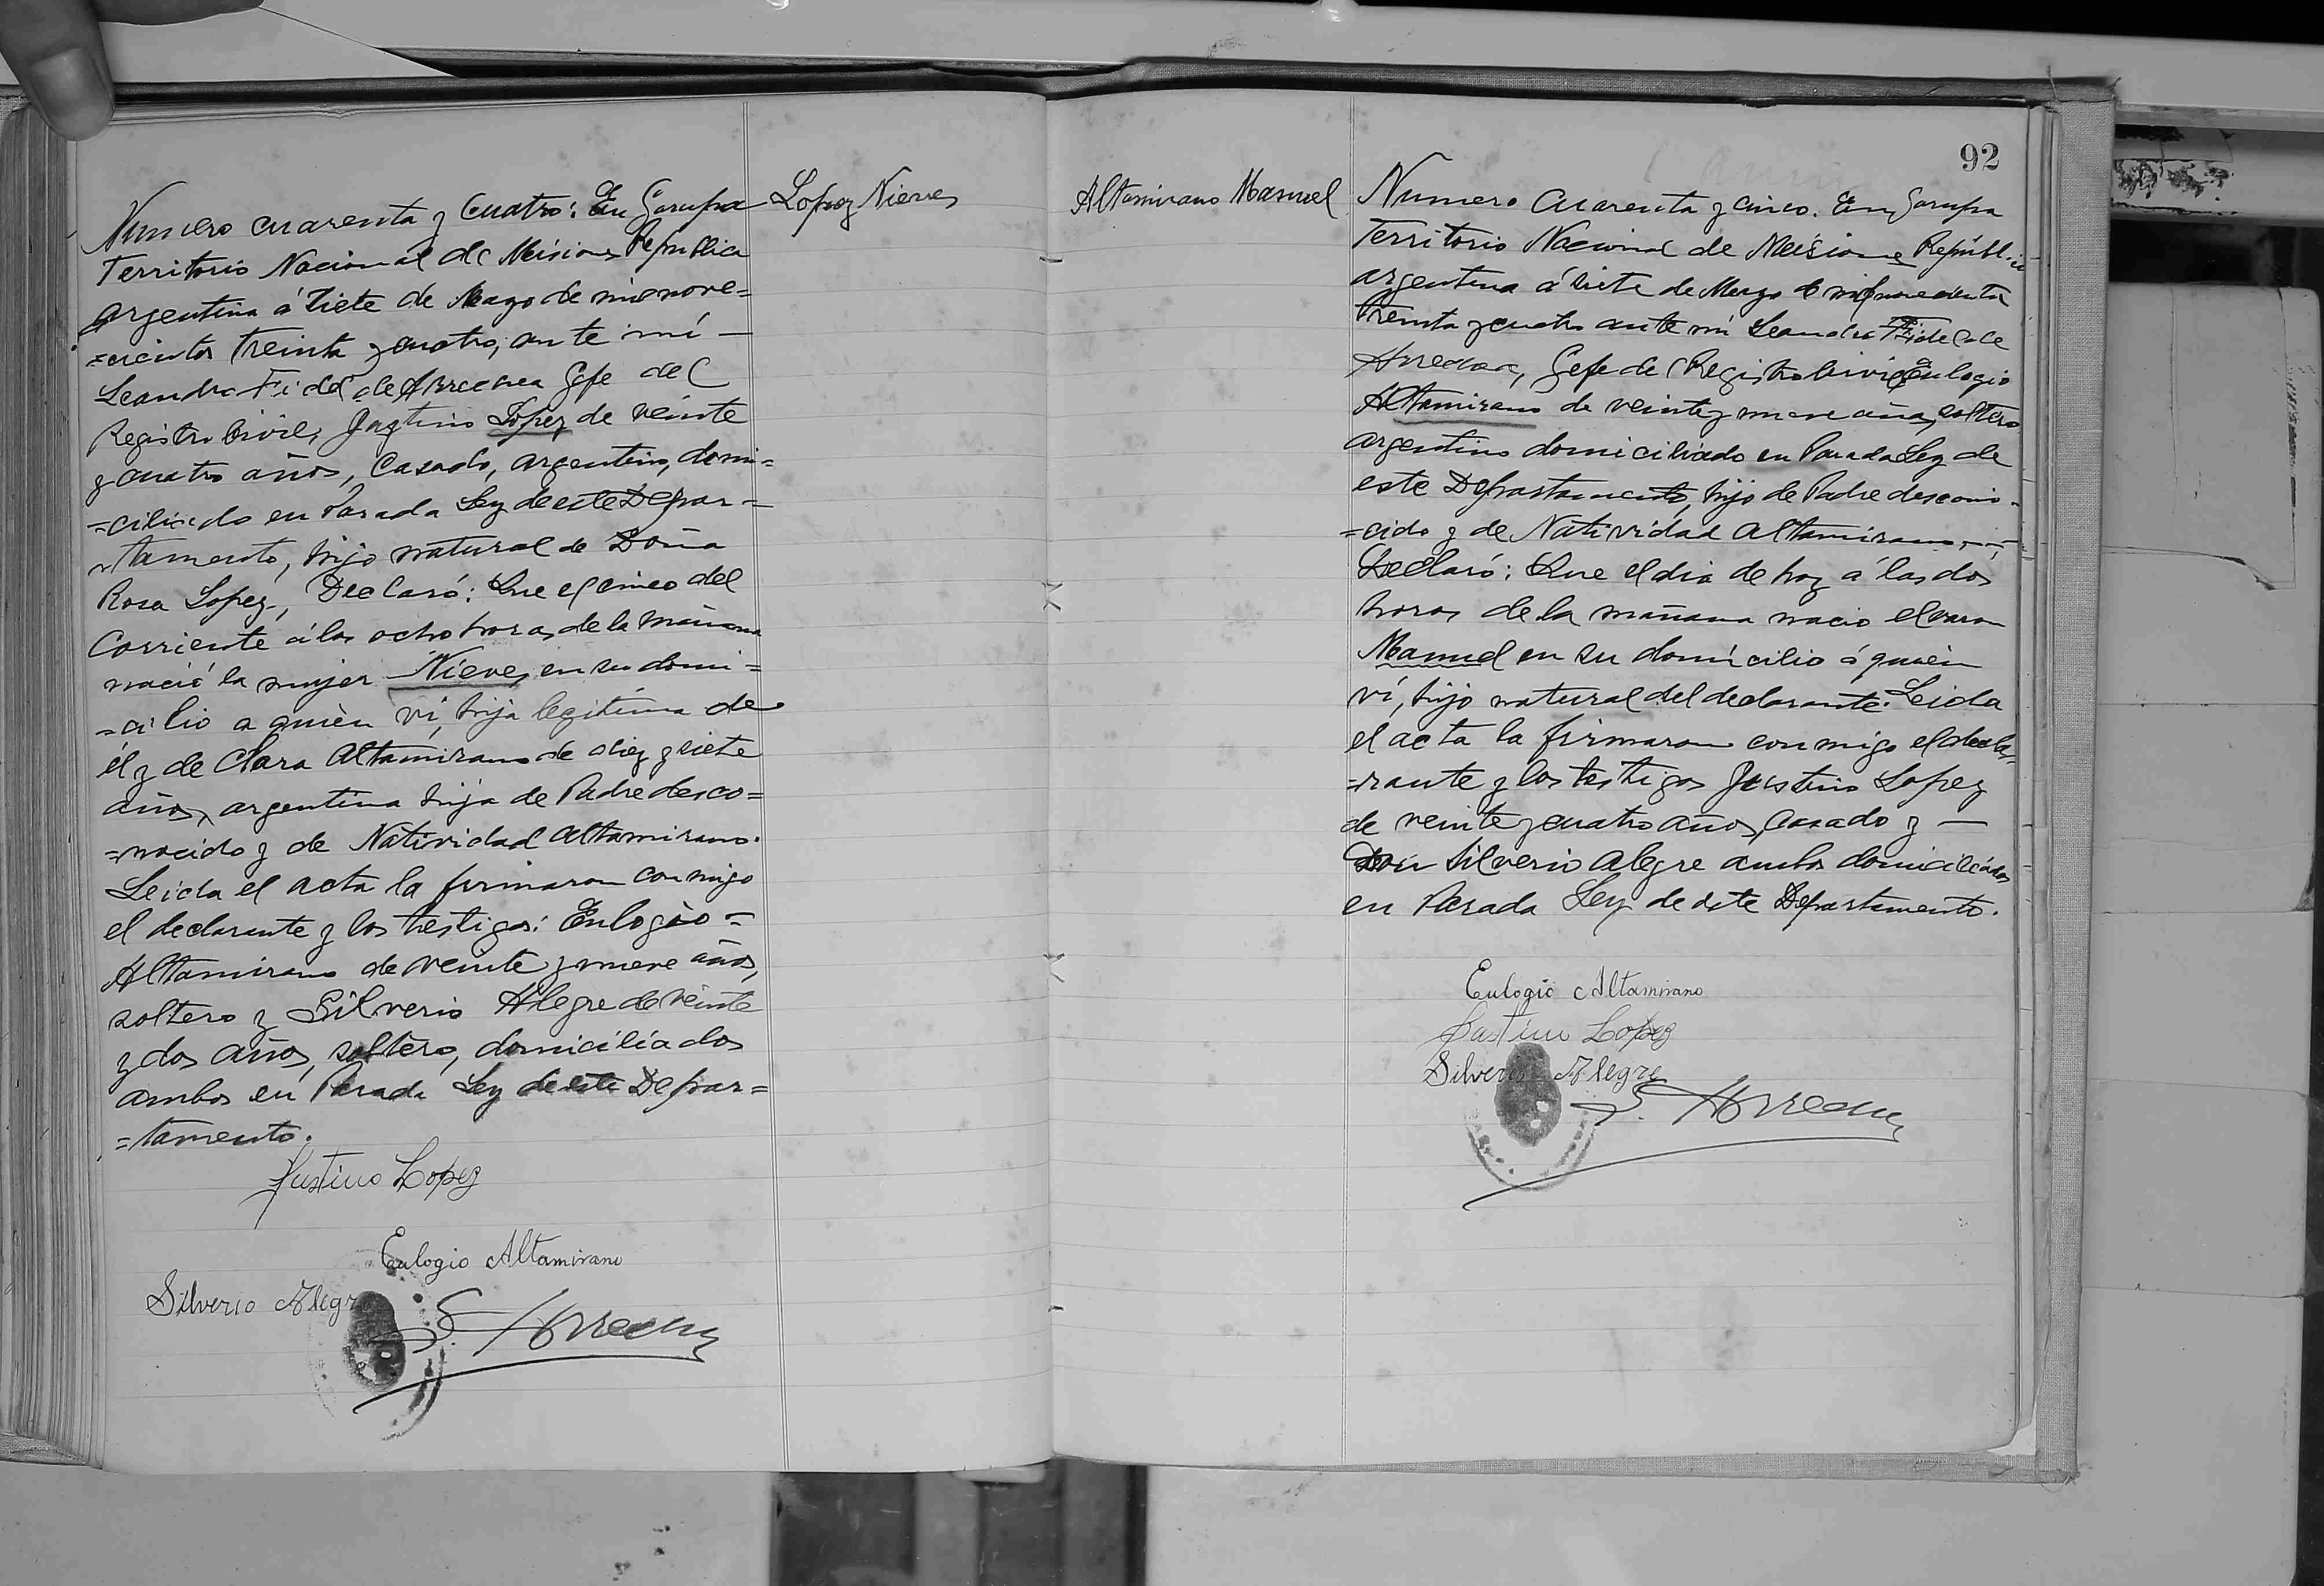 Numero cuarenta y cuatro: En Garupa
Territorio Nacional de Misiones Republica
argentina á siete de Mayo de mil nove=
=cientos treinta y cuatro, ante mí —
Leandro Fidel de Arrechea Gefe del
Registro Civil, Justino Lopez de veinte
y cuatro años, Casado, argentino, domi=
=ciliado en Parada Ley de este Depar=
=tamento, hijo natural de Doña
Rosa Lopez, Declaró: Que el cinco del
Corriente á las ocho horas de la mañana
nació la mujer Nieves en su domi=
=cilio a quièn ví, hija legitima de
él y de Clara Altamirano de diez y siete
años, argentina hija de Padre desco=
=nocido y de Natividad Altamirano.
Leida el acta la firmaron conmigo
el declarante y los testigos: Eulogio =
Altamirano de veinte y nueve años,
soltero y Silverio Alegre de veinte
y dos años, soltero, domiciliados
ambos en Parada Ley de este Depar=
=tamento.
Justino Lopez
Eulogio Altamirano
Silverio Alegre
Lopez Nieves
Altamirano Manuel
92
Numero Cuarenta y cinco. En Garupa
Territorio Nacional de Misiones Républica
argentina á siete de Mayo de mil novecientos
treinta y cuatro ante mí Leandro Fidel de
Arrechea, Gefe del Registro Civil, Eulogio
Altamirano de veinte y nueve años, soltero
argentino domiciliado en Parada Ley de
este Departamento, hijo de Padre descono=
=cido y de Natividad Altamirano,—
Declaró: Que el dia de hoy á las dos
horas de la mañana nacio el varon
Manuel en su domicilio á quièn
ví, hijo natural del declarante. Leida
el acta la firmaron conmigo el decla=
=rante y los testigos Justino Lopez
de veinte y cuatro años, casado y —
Don Silverio Alegre ambos domiciliados
en Parada Ley de este Departamento.
Eulogio Altamirano
Justino Lopez
Silverio Alegre